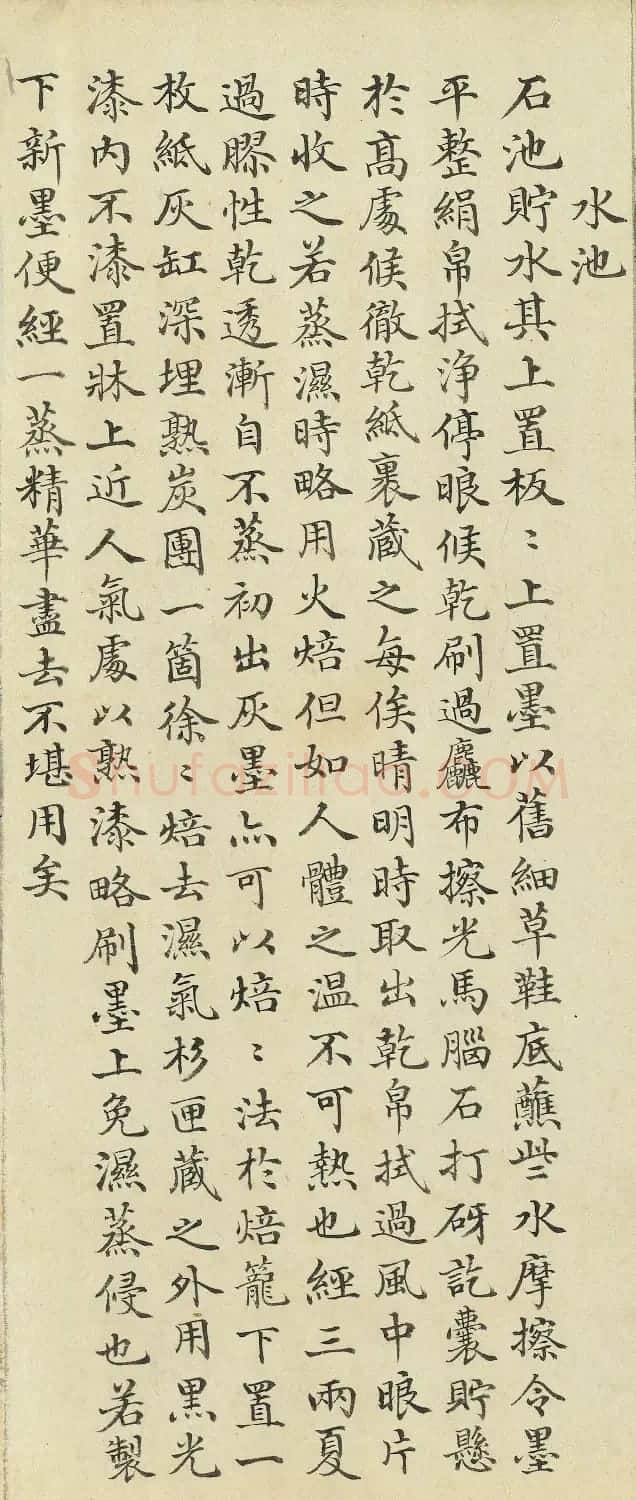 水池
石池貯水其上置板〻上置墨以舊細草鞋底蘸些水摩擦令墨
平整絹帛拭淨停眼候乾刷過麤布擦光馬腦石打砑訖囊貯懸
於高處候徹乾紙裹蔵之每俟晴明時取出乾帛拭過風中眼片
時收之若蒸濕時略用火焙但如人體之温不可熱也經三兩夏
過膠性乾透漸自不蒸初出灰墨亦可以焙〻法於焙籠下置一
枚紙灰缸深埋熟炭團一箇徐〻焙去濕氣杉匣蔵之外用黑光
漆內不漆置牀上近人氣處以熟漆略刷墨上免濕蒸侵也若製
下新墨便經一蒸精華盡去不堪用矣
Shufaziliao.COM